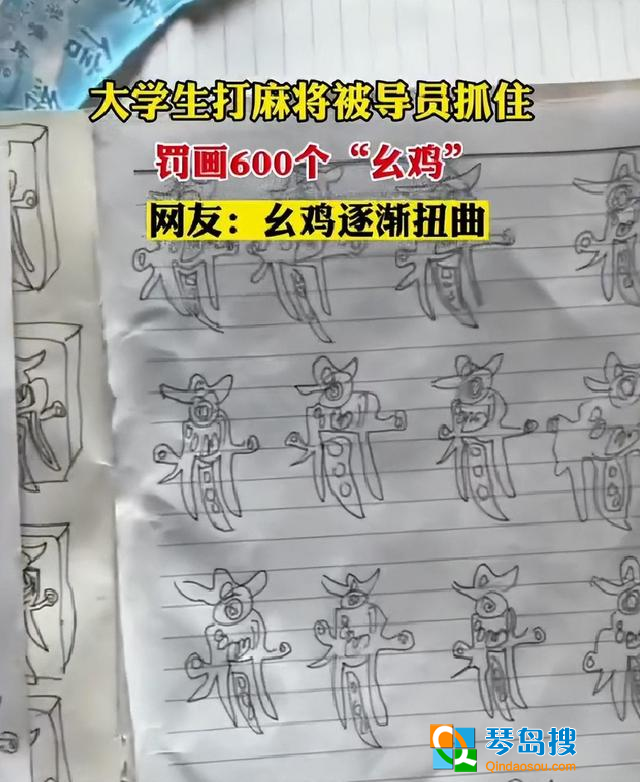 大学生打麻将被导员抓住
罚画600个“幺鸡”
网友：幺鸡逐渐扭曲
琴岛搜
Qindaosou.com